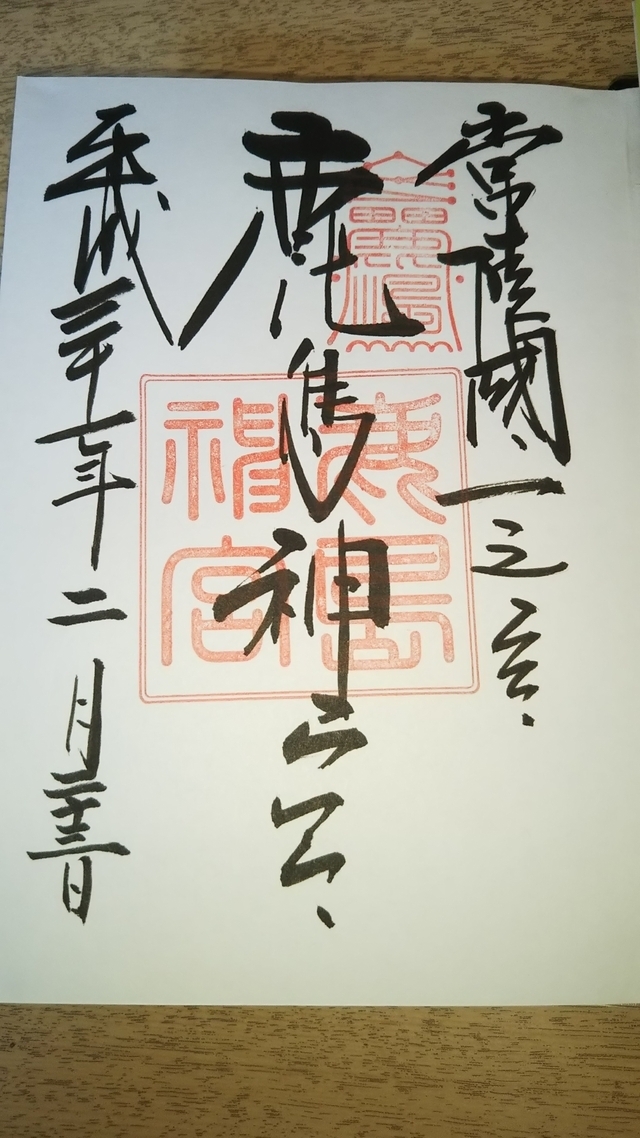 常陸國一之宮
鹿島神宮
平成二十七年二月二十三日
鹿島神宮